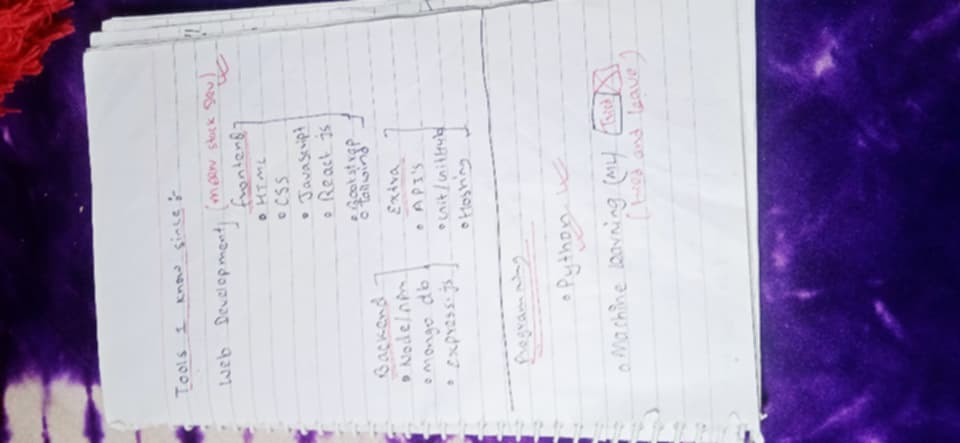 Tools I know since :-
Web Development (mern stack dev)
frontend
• HTML
• CSS
• JavaScript
• React js
• Bootstrap
• Tailwind
Backend
• Node/npm
• mongo db
• express.js
Extra
• API's
• Git/GitHub
• Hosting
Programming
• Python
• Machine learning (ML)
(tried and leave)